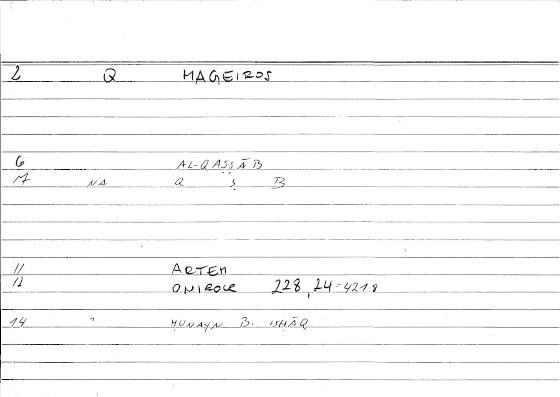 2 Q MAGEIROS
6 AL-QAṢṢĀB
7 NA Q Ṣ B
11 ARTEM
12 ONIROCR 228,24=421.8
14 " ḤUNAYN B. ISḤĀQ